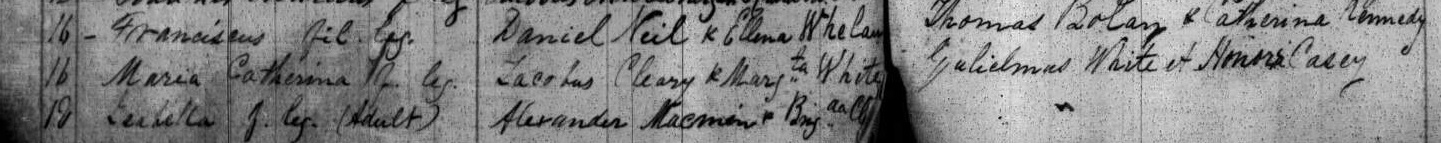 16 - Franciscus fil. leg. Daniel Neil & Ellena Whelan Thomas Bolan & Catherina Kennedy
16 Maria Catherina f. leg. Jacobus Cleary & Marg.ta White Gulielmus White et Honora Casey
18 Isabella f. leg. (Adult) Alexander &